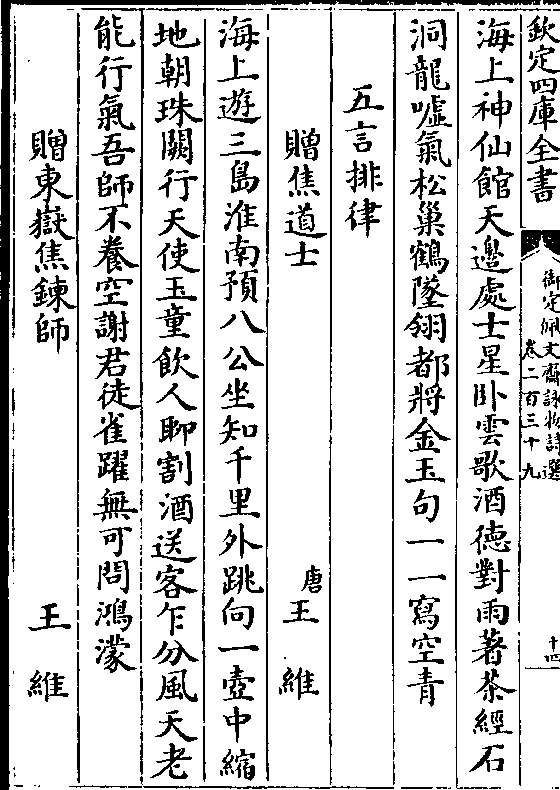 欽定四庫全書
御定佩文齋詠物詩選
卷二百三十九
十四
海上神仙館天邊處士星卧雲歌酒德對雨著茶經石
洞龍噓氣松巢鶴墜翎都將金玉句一一寫空青
五言排律
贈焦道士 唐王維
海上遊三島淮南預八公坐知千里外跳向一壺中縮
地朝珠闕行天使玉童飲人聊割酒送客乍分風天老
能行氣吾師不養空謝君徒雀躍無可問鴻濛
贈東嶽焦鍊師 王維